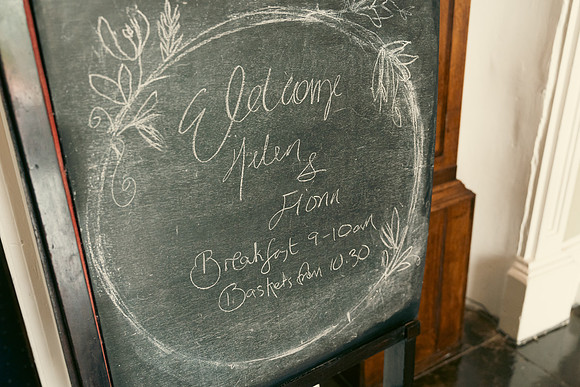 Welcome
Helen
&
Fionn
Breakfast 9-10am
Baskets from 10.30